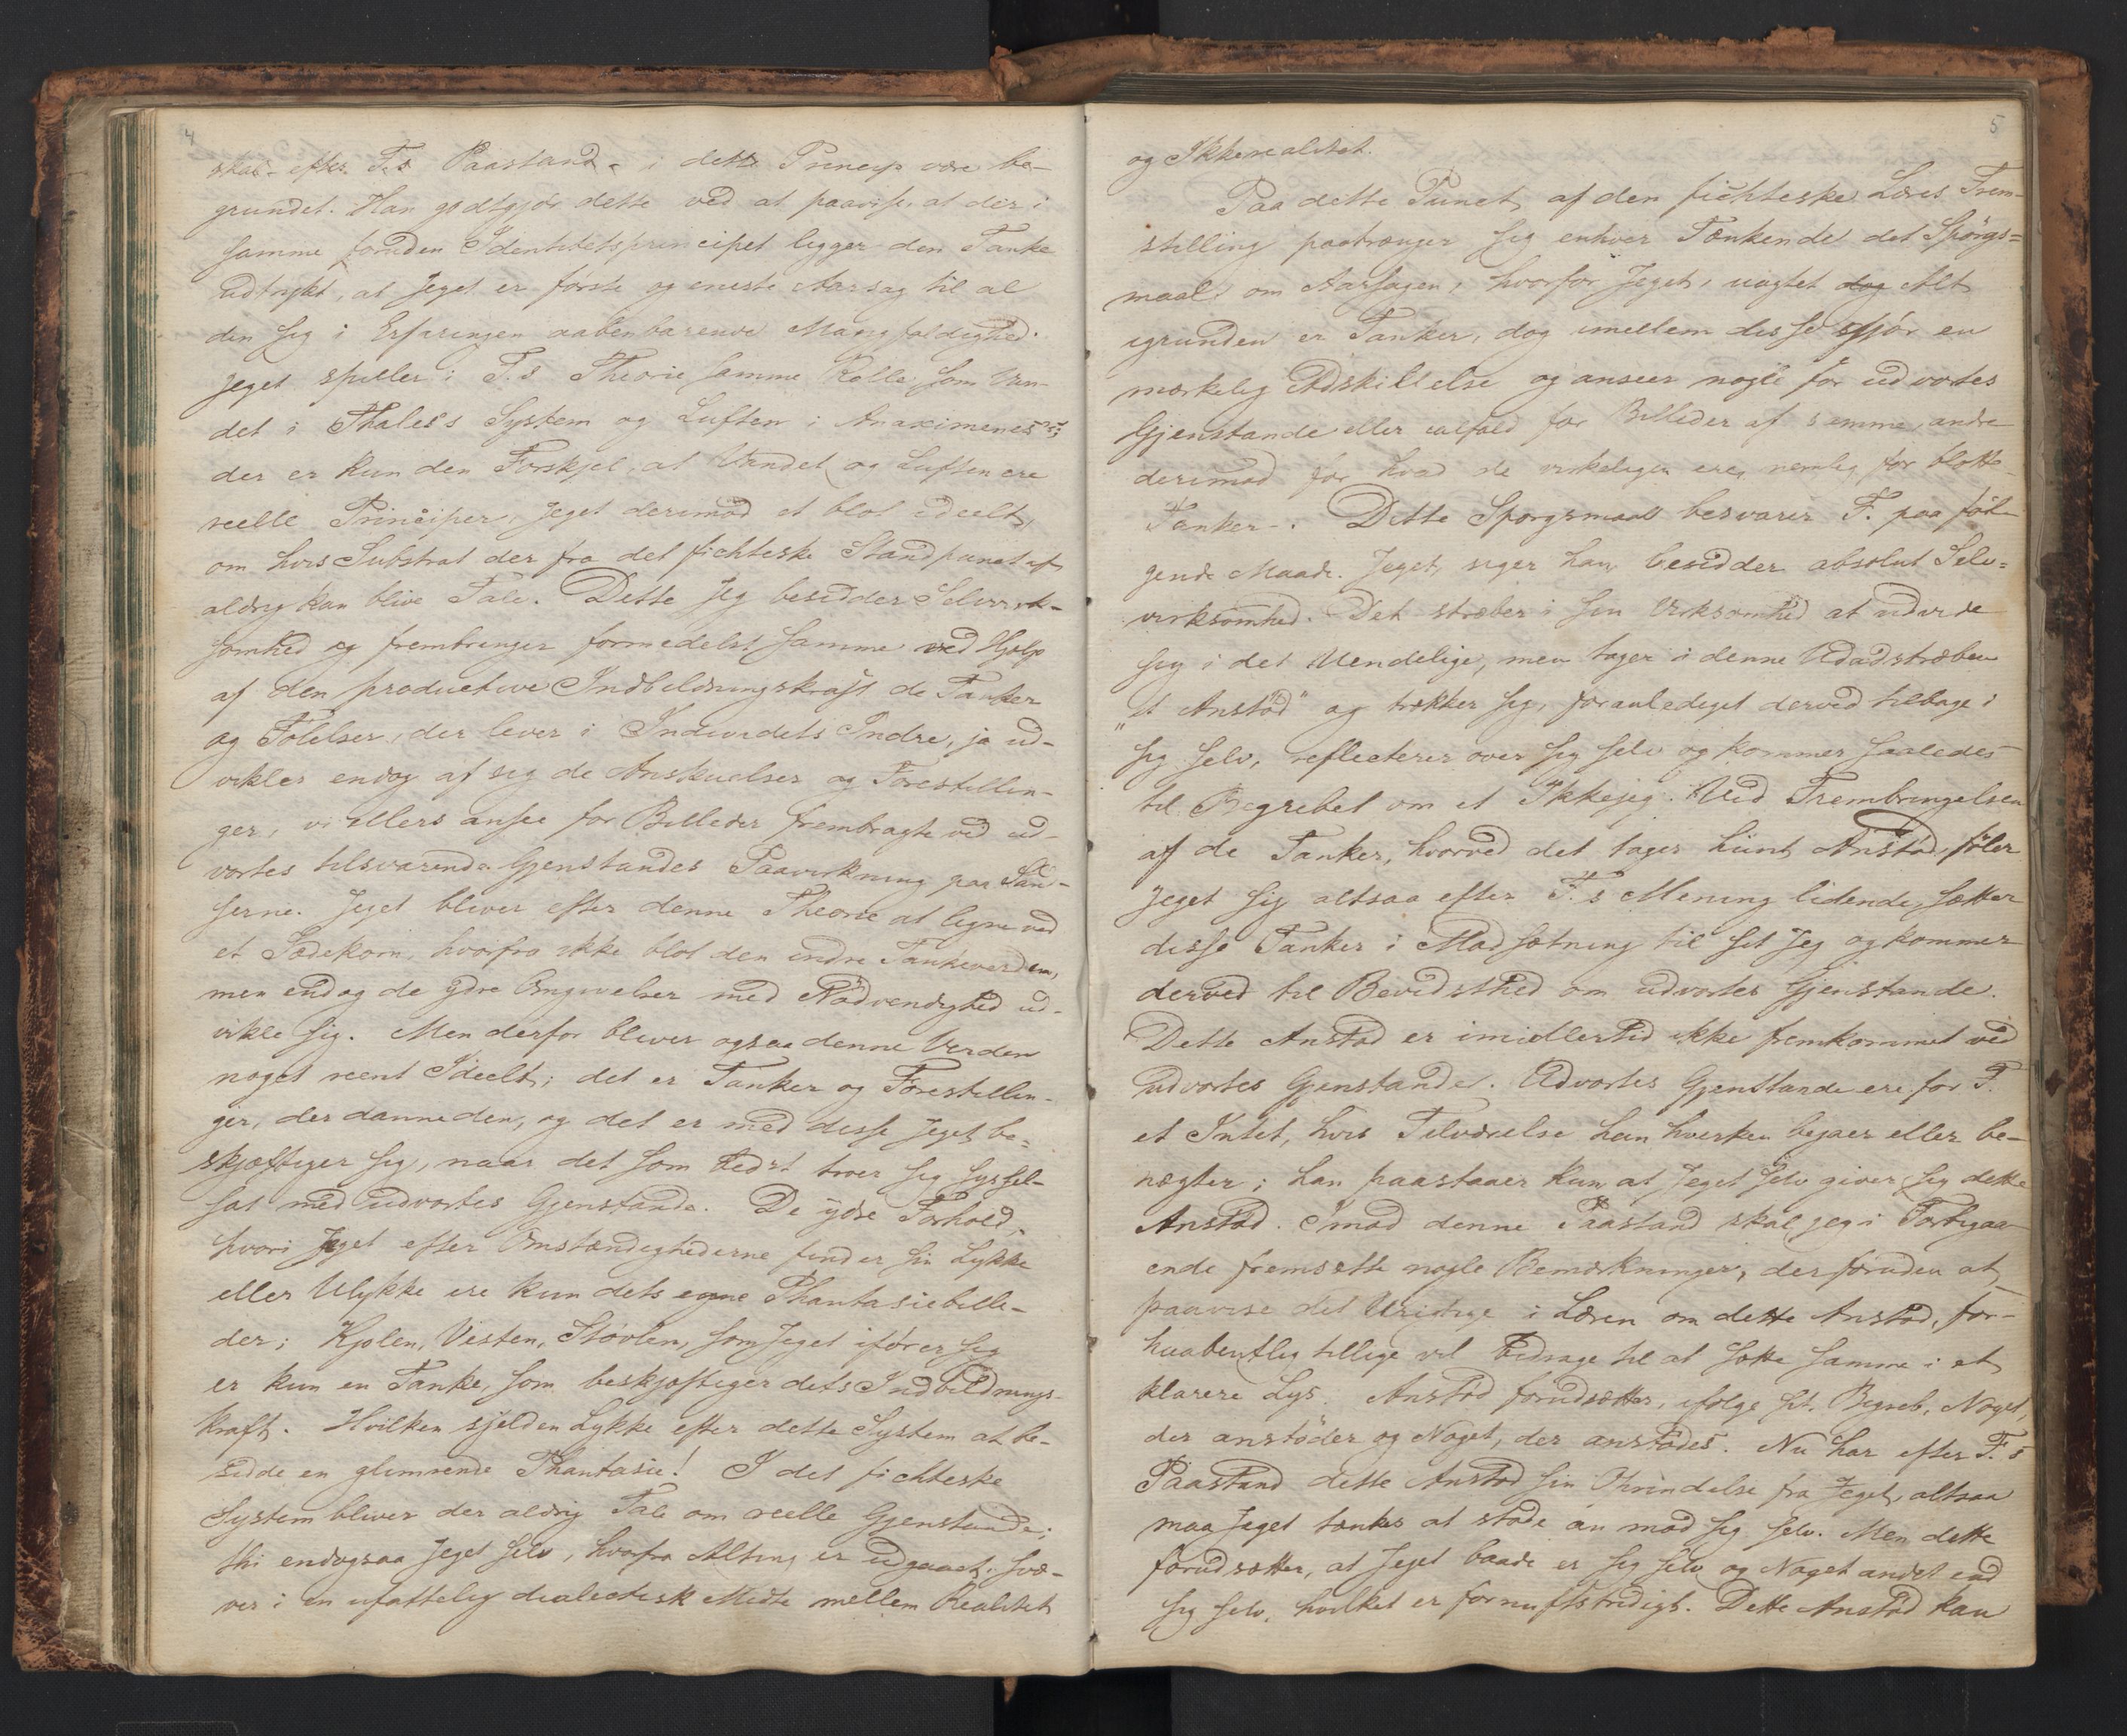 4
skal - efter F.s Paastand - i dette Princip være be-
grundet. Han godtgjör dette ved at paavise, at der i
samme foruden Identitetsprincipet ligger den Tanke
udtrykt, at Jeget er förste og eneste Aarsag til al
den sig i Erfaringen aabenbarende Mangfoldighed.
Jeget spiller i F.s Theorie samme Rolle som Van-
det i Thales's System og Luften i Anaximenes's;
der er kun den Forskjel, at Vandet og Luften ere
reelle Principer, Jeget derimod et blot ideelt,
om hvis Substrat der fra det fichteske Standpunct af
aldrig kan blive Tale. Dette Jeg besidder Selvvirk-
somhed og frembringer formedelst samme ved Hjelp
af den productive Indbildningskraft de Tanker
og Fölelser, der lever i Individets Indre, ja ud-
vikler endog af sig de Anskuelser og Forestillin-
ger, vi ellers ansee for Billeder frembragte ved ud-
vortes tilsvarende Gjenstandes Paavirkning paa San-
serne. Jeget bliver efter denne Theorie at ligne ved
et Sædekorn, hvorfra ikke blot den indre Tankeverden,
men endog de ydre Omgivelser med Nödvendighed ud-
vikle sig. Men derfor bliver ogsaa denne Verden
noget reent Ideelt; det er Tanker og Forestillin-
ger, der danne den, og det er med disse Jeget be-
skjæftiger sig, naar det som bedst troer sig syssel-
sat med udvortes Gjenstande. De ydre Forhold,
hvori Jeget efter Omstændighederne finder sin Lykke
eller Ulykke ere kun dets egne Phantasiebille-
der; Kjolen, Vesten, Stövlen, som Jeget iförer sig
er kun en Tanke, som beskjæftiger dets Indbildnings-
kraft. Hvilken sjelden Lykke efter dette System at be-
sidde en glimrende Phantasie! I det fichteske
System bliver der aldrig Tale om reelle Gjenstande;
thi endogsaa Jeget selv, hvorfra Alting er udgaaet, svæ-
ver i en ufattelig dialectisk Midte mellem Realitet
5
og Ikkerealitet.
Paa dette Punct af den fichteske Læres Frem-
stilling paatrænger sig enhver Tænkende det Spörgs-
maal om Aarsagen, hvorfor Jeget, uagtet dog Alt
igrunden er Tanker, dog imellem disse gjör en
mærkelig Adskillelse og anseer nogle for udvortes
Gjenstande eller ialfald for Billeder af samme, andre
derimod for hvad de virkeligen ere, nemlig for blotte
Tanker -. Dette Spörgsmaal besvarer F. paa föl-
gende Maade. Jeget, siger han, besidder absolut Selv-
virksomhed. Det stræber i sin Virksomhed at udvide
sig i det Uendelige, men tager i denne Udadstræben
"et Anstöd" og trækker sig, foranlediget derved tilbage i
sig selv, reflecterer over sig selv og kommer saaledes
til Begrebet om et Ikkejeg. Ved Frembringelsen
af de Tanker, hvorved det tager hiint Anstöd, föler
Jeget sig altsaa efter F.s Mening lidende, sætter
disse Tanker i Modsætning til sit Jeg og kommer
derved til Bevidsthed om udvortes Gjenstande.
Dette Anstöd er imidlertid ikke fremkommet ved
udvortes Gjenstande. Udvortes Gjenstande ere for F.
et Intet, hvis Tilværelse han hverken bejaer eller be-
nægter; han paastaaer kun, at Jeget selv giver sig dette
Anstöd. Imod denne Paastand skal jeg i Forbigaa-
ende fremsætte nogle Bemærkninger, der foruden at
paavise det Urigtige i Læren om dette Anstöd, for-
haabentlig tillige vil bidrage til at sætte samme i et
klarere Lys. Anstöd forudsætter, ifölge sit Begreb, Noget,
der anstöder og Noget, der anstödes. Nu har efter F.s
Paastand dette Anstöd sin Oprindelse fra Jeget, altsaa
maa Jeget tænkes at stöde an mod sig selv. Men dette
forudsætter, at Jeget baade er sig selv og Noget andet end
sig selv, hvilket er fornuftstridigt. Dette Anstöd kan